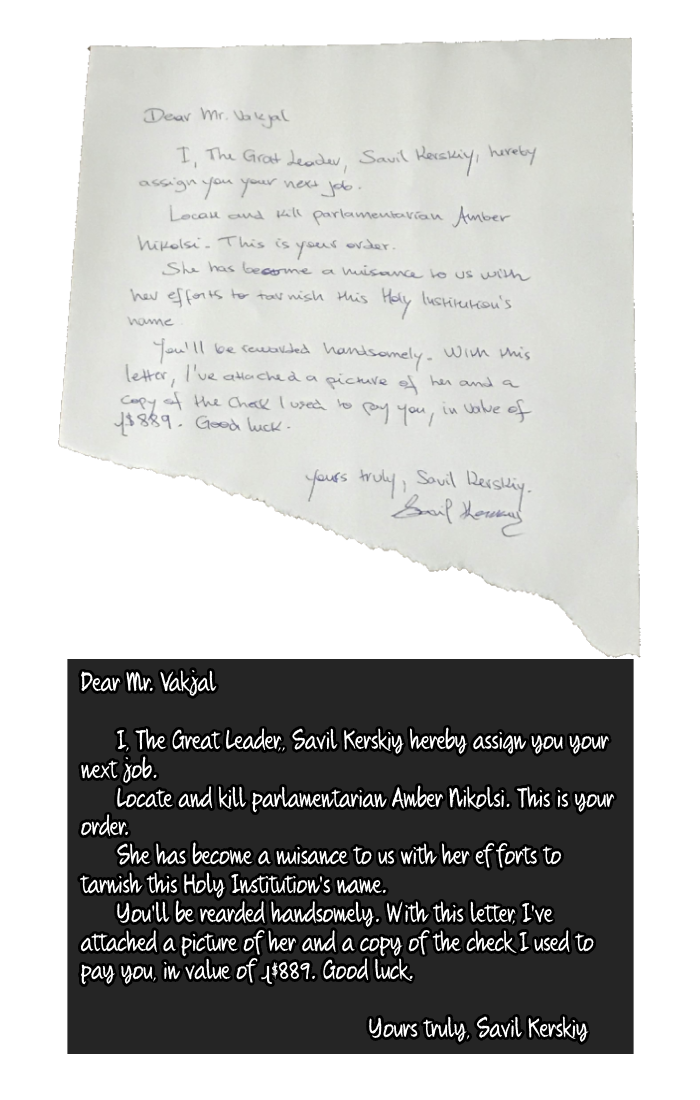 Dear Mr. Vakjal
I, The Grat Leader, Savil Kerskiy, hereby
assign you your next job.
Locate and kill parlamentarian Amber
Nikolsi. This is your order.
She has become a nuisance to us with
her efforts to tarnish this Holy Institution's
name.
You'll be rewarded handsomely. With this
letter, I've attached a picture of her and a
copy of the check I used to pay you, in value of
$889. Good luck.
Yours truly, Savil Kerskiy.
Savil Kerskiy
Dear Mr. Vakjal
I, The Great Leader,, Savil Kerskiy hereby assign you your
next job.
Locate and kill parlamentarian Amber Nikolsi. This is your
order.
She has become a nuisance to us with her efforts to
tarnish this Holy Institution's name.
You'll be rearded handsomely. With this letter, I've
attached a picture of her and a copy of the check I used to
pay you, in value of $889. Good luck,
Yours truly, Savil Kerskiy